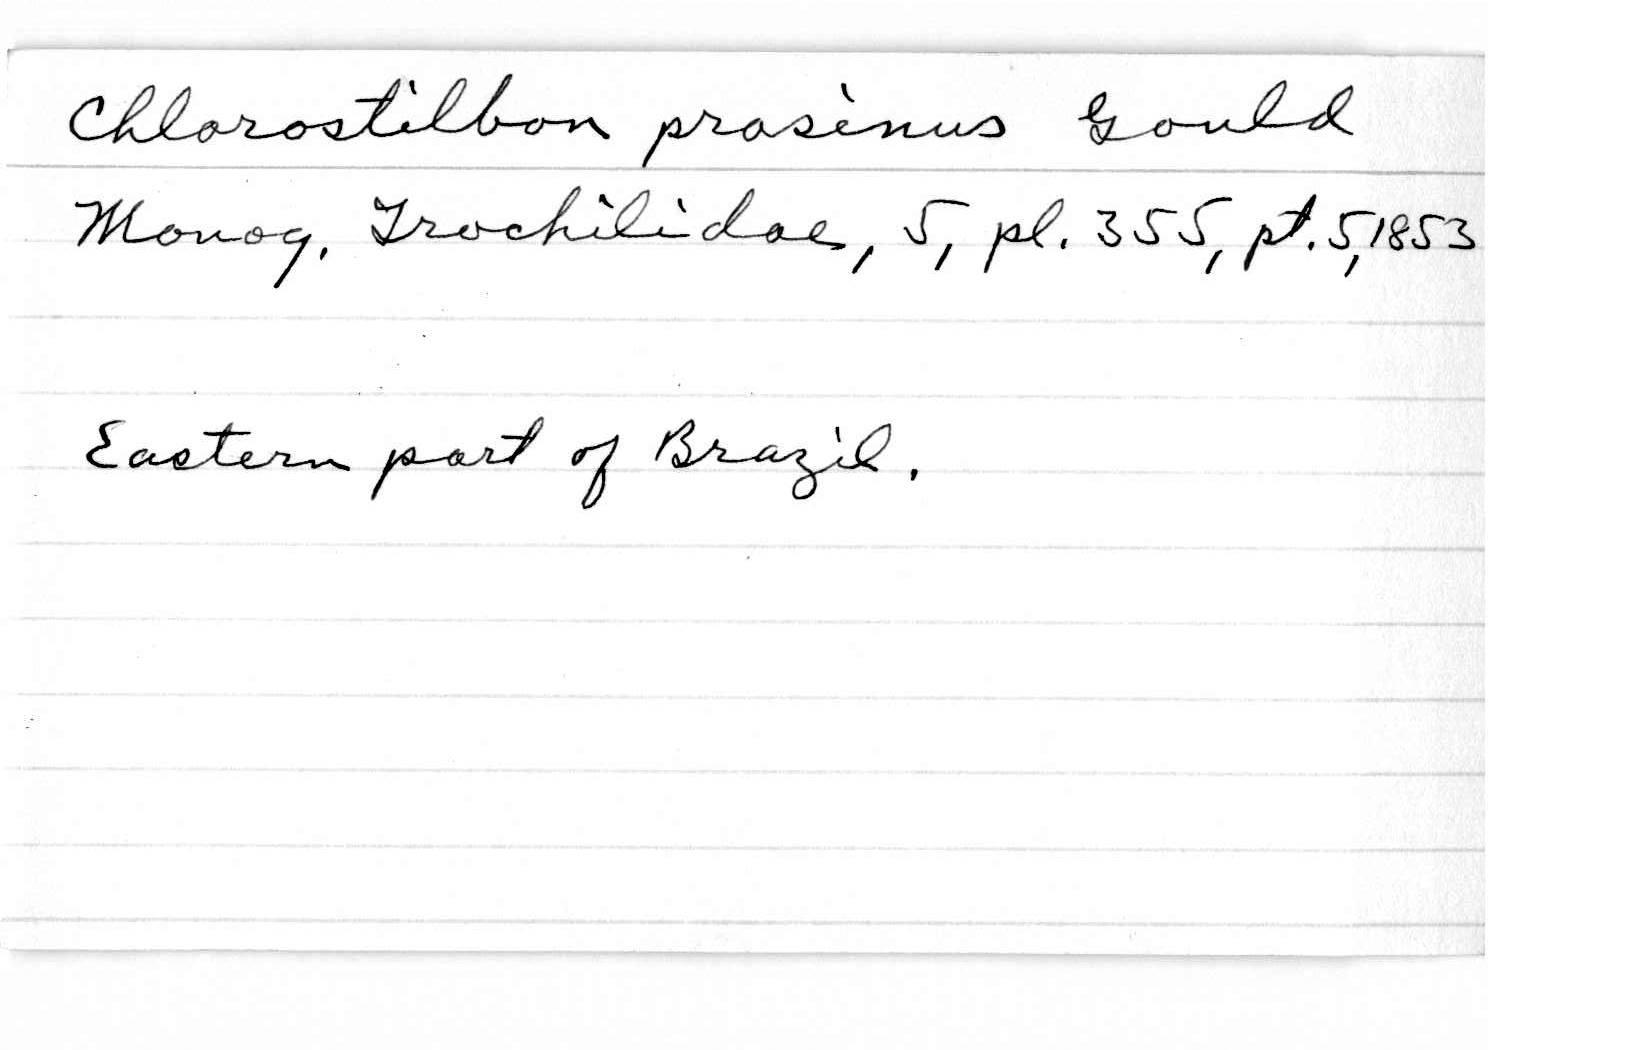 Chlorostilbon prasinus Gould
Monog. Trochilidae, 5, pl. 355, pt. 5, 1853
Eastern part of Brazil.